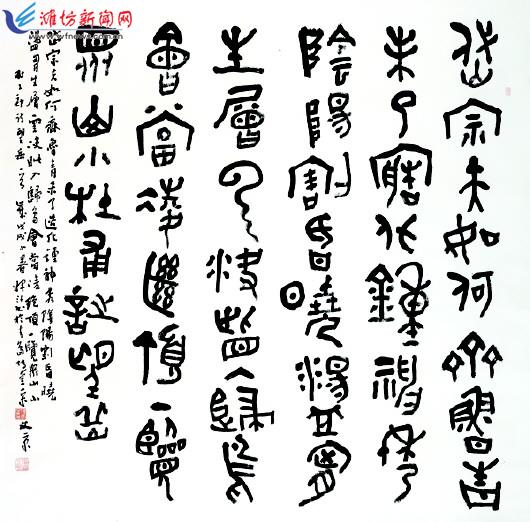 潍坊新闻网
www.wfnews.com.cn
岱宗夫如何齊魯青
未了造化鍾神秀
陰陽割昏曉盪胸
生層雲決眥入歸鳥
會當凌絕頂一覽
眾山小杜甫詩望岳
岱宗夫如何齊魯青未了造化鍾神秀陰陽割昏曉
盪胸生層雲決眥入歸鳥會當凌絕頂一覽眾山小
杜工部詩望岳一首歲戊戌小暑